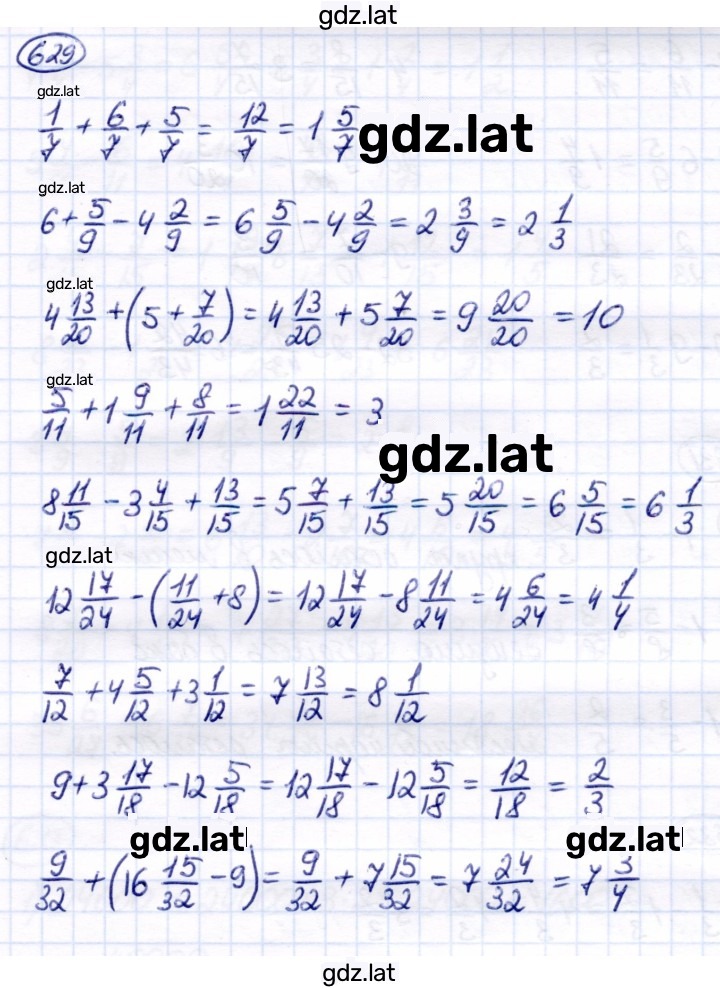 gdz.lat
629
gdz.lat
1/7 + 6/7 + 5/7 = 12/7 = 1 5/7 gdz.lat
gdz.lat
6 + 5/9 - 4 2/9 = 6 5/9 - 4 2/9 = 2 3/9 = 2 1/3
gdz.lat
4 13/20 + (5 + 7/20) = 4 13/20 + 5 7/20 = 9 20/20 = 10
gdz.lat
5/11 + 1 9/11 + 8/11 = 1 22/11 = 3
gdz.lat
8 11/15 - 3 4/15 + 13/15 = 5 7/15 + 13/15 = 5 20/15 = 6 5/15 = 6 1/3
gdz.lat
12 17/24 - (11/24 + 8) = 12 17/24 - 8 11/24 = 4 6/24 = 4 1/4
7/12 + 4 5/12 + 3 1/12 = 7 13/12 = 8 1/12
9 + 3 17/18 - 12 5/18 = 12 17/18 - 12 5/18 = 12/18 = 2/3
gdz.lat gdz.lat
9/32 + (16 15/32 - 9) = 9/32 + 7 15/32 = 7 24/32 = 7 3/4
gdz.lat